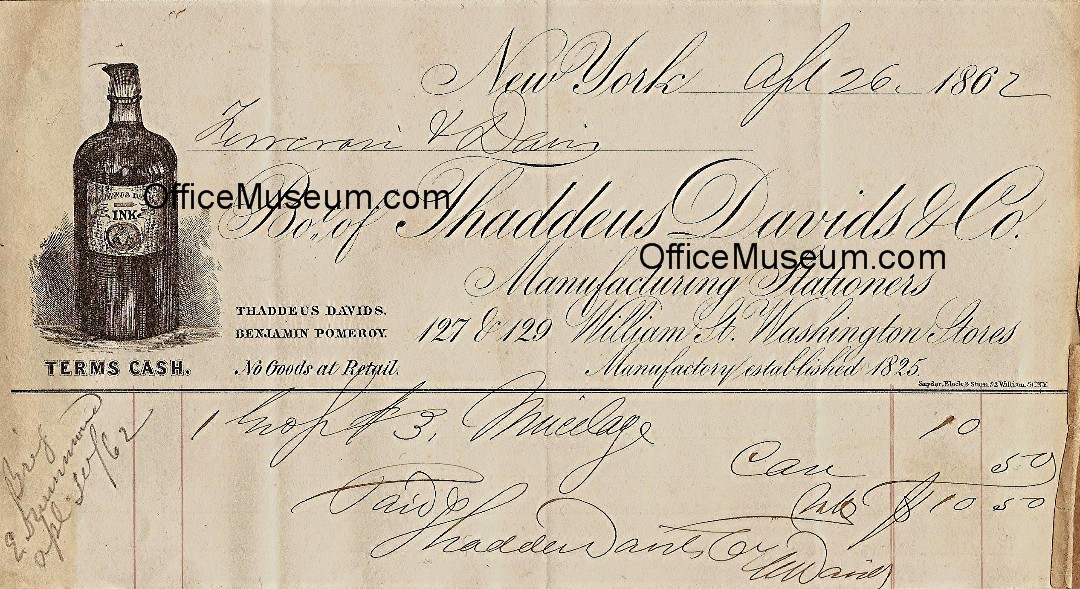 New York Apl 26. 1862
& Davis
INK
OfficeMuseum.com
Bo't of Thaddeus Davids & Co.
OfficeMuseum.com
Manufacturing Stationers
THADDEUS DAVIDS.
BENJAMIN POMEROY.
127 & 129 William St. Washington Stores
TERMS CASH.
No Goods at Retail.
Manufactory established 1825.
Snyder, Black & Sturn, 92 William St. N.Y.
1 #3. Mucilage 10
50
$10 50
Paid
Thaddeus Davids & Co
Davids
Apl 30/62